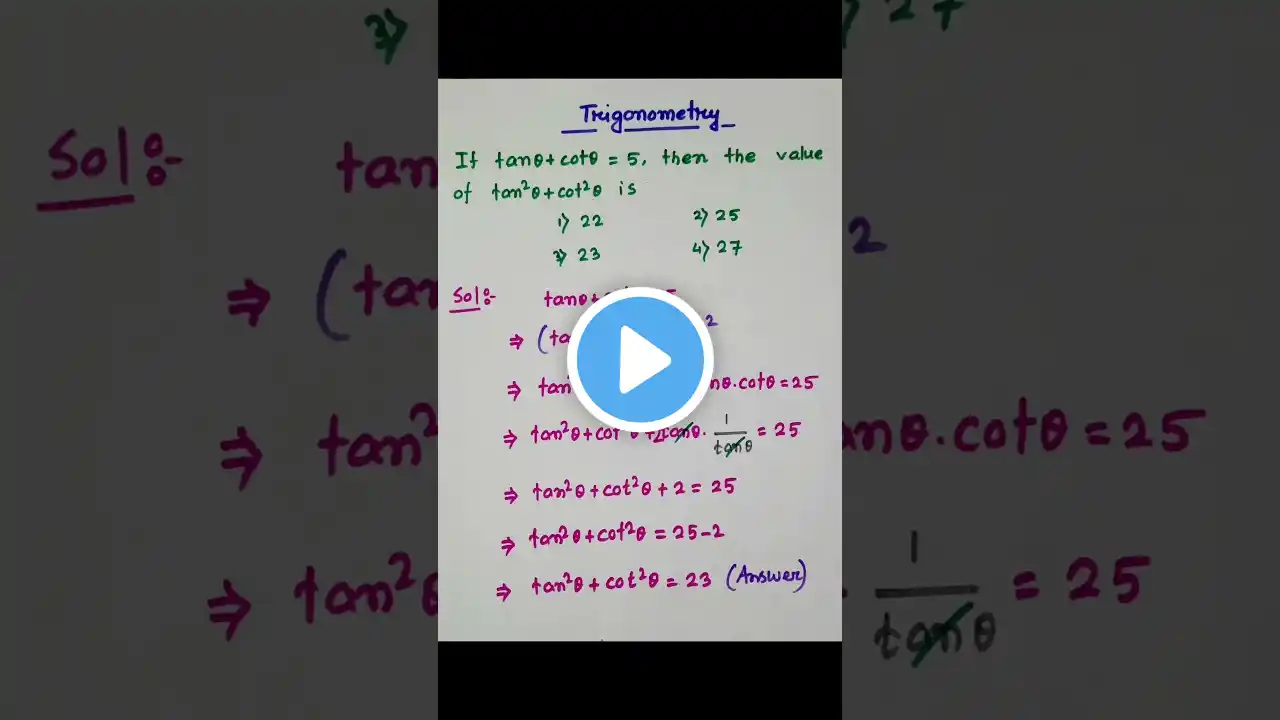 Trigonometry
If tanθ+cotθ = 5, then the value
of tan²θ+cot²θ is
1) 22 2) 25
3) 23 4) 27
Sol:-
⇒ (ta 2
⇒ tan² nθ.cotθ=25
⇒ tan²θ+cot²θ+2tanθ. 1/tanθ = 25
⇒ tan²θ+cot²θ+2 = 25
⇒ tan²θ+cot²θ = 25-2
⇒ tan²θ+cot²θ = 23 (Answer)